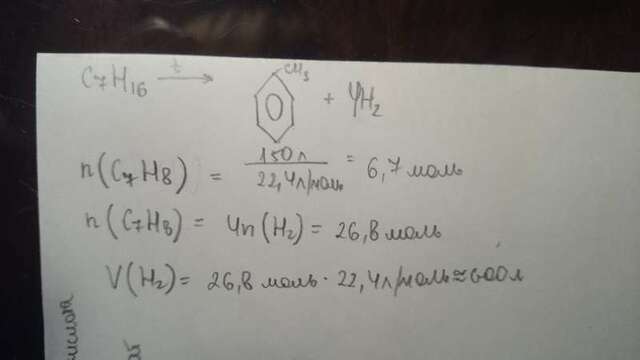 C7H16 t → CH3 + 4H2
n(C7H8) = 150л / 22,4л/моль = 6,7 моль
n(C7H8) = 4n(H2) = 26,8 моль
V(H2) = 26,8 моль · 22,4л/моль ≈ 600л
кислота